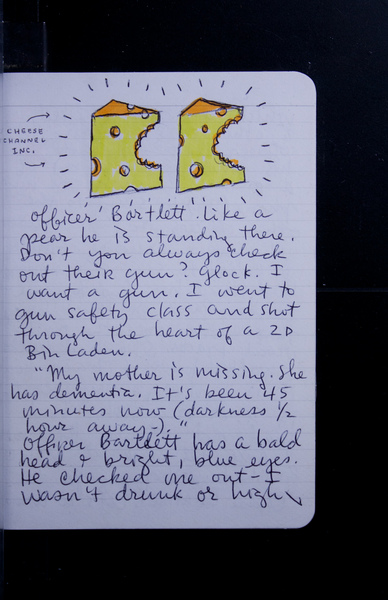 CHEESE
CHANNEL
INC.
officer Bartlett. Like a
pear he is standing there.
Don't you always check
out their gun? Glock. I
want a gun. I went to
gun safety class and shot
through the heart of a 2D
Bin Laden.
"My mother is missing. She
has dementia. It's been 45
minutes now (darkness 1/2
hour away)."
Officer Bartlett has a bald
head & bright, blue eyes.
He checked me out - I
wasn't drunk or high